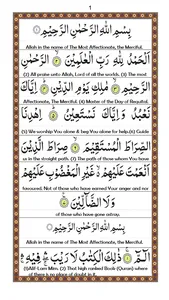 1
بِسْمِ اللهِ الرَّحْمٰنِ الرَّحِيْمِ
Allah in the name of The Most Affectionate, the Merciful.
اَلْحَمْدُ لِلّٰهِ رَبِّ الْعٰلَمِيْنَ الرَّحْمٰنِ
(2) All praise unto Allah, Lord of all the worlds. (3) The most
الرَّحِيْمِ مٰلِكِ يَوْمِ الدِّيْنِ اِيَّاكَ
Affectionate, The Merciful. (4) Master of the Day of Requital.
نَعْبُدُ وَاِيَّاكَ نَسْتَعِيْنُ اِهْدِنَا
(5) We worship You alone & beg You alone for help. (6) Guide
الصِّرَاطَ الْمُسْتَقِيْمَ صِرَاطَ الَّذِيْنَ
us in the straight path. (7) The path of those whom You have
اَنْعَمْتَ عَلَيْهِمْ غَيْرِ الْمَغْضُوْبِ عَلَيْهِمْ
favoured. Not of those who have earned Your anger and nor
وَلَا الضَّآلِّيْنَ
of those who have gone astray.
بِسْمِ اللهِ الرَّحْمٰنِ الرَّحِيْمِ
Allah in the name of The Most Affectionate, the Merciful.
الٓمّٓ ذٰلِكَ الْكِتٰبُ لَا رَيْبَ فِيْهِ
(1)Alif-Lam-Mim. (2) That high ranked Book (Quran) where
of there is no place of doubt in it.